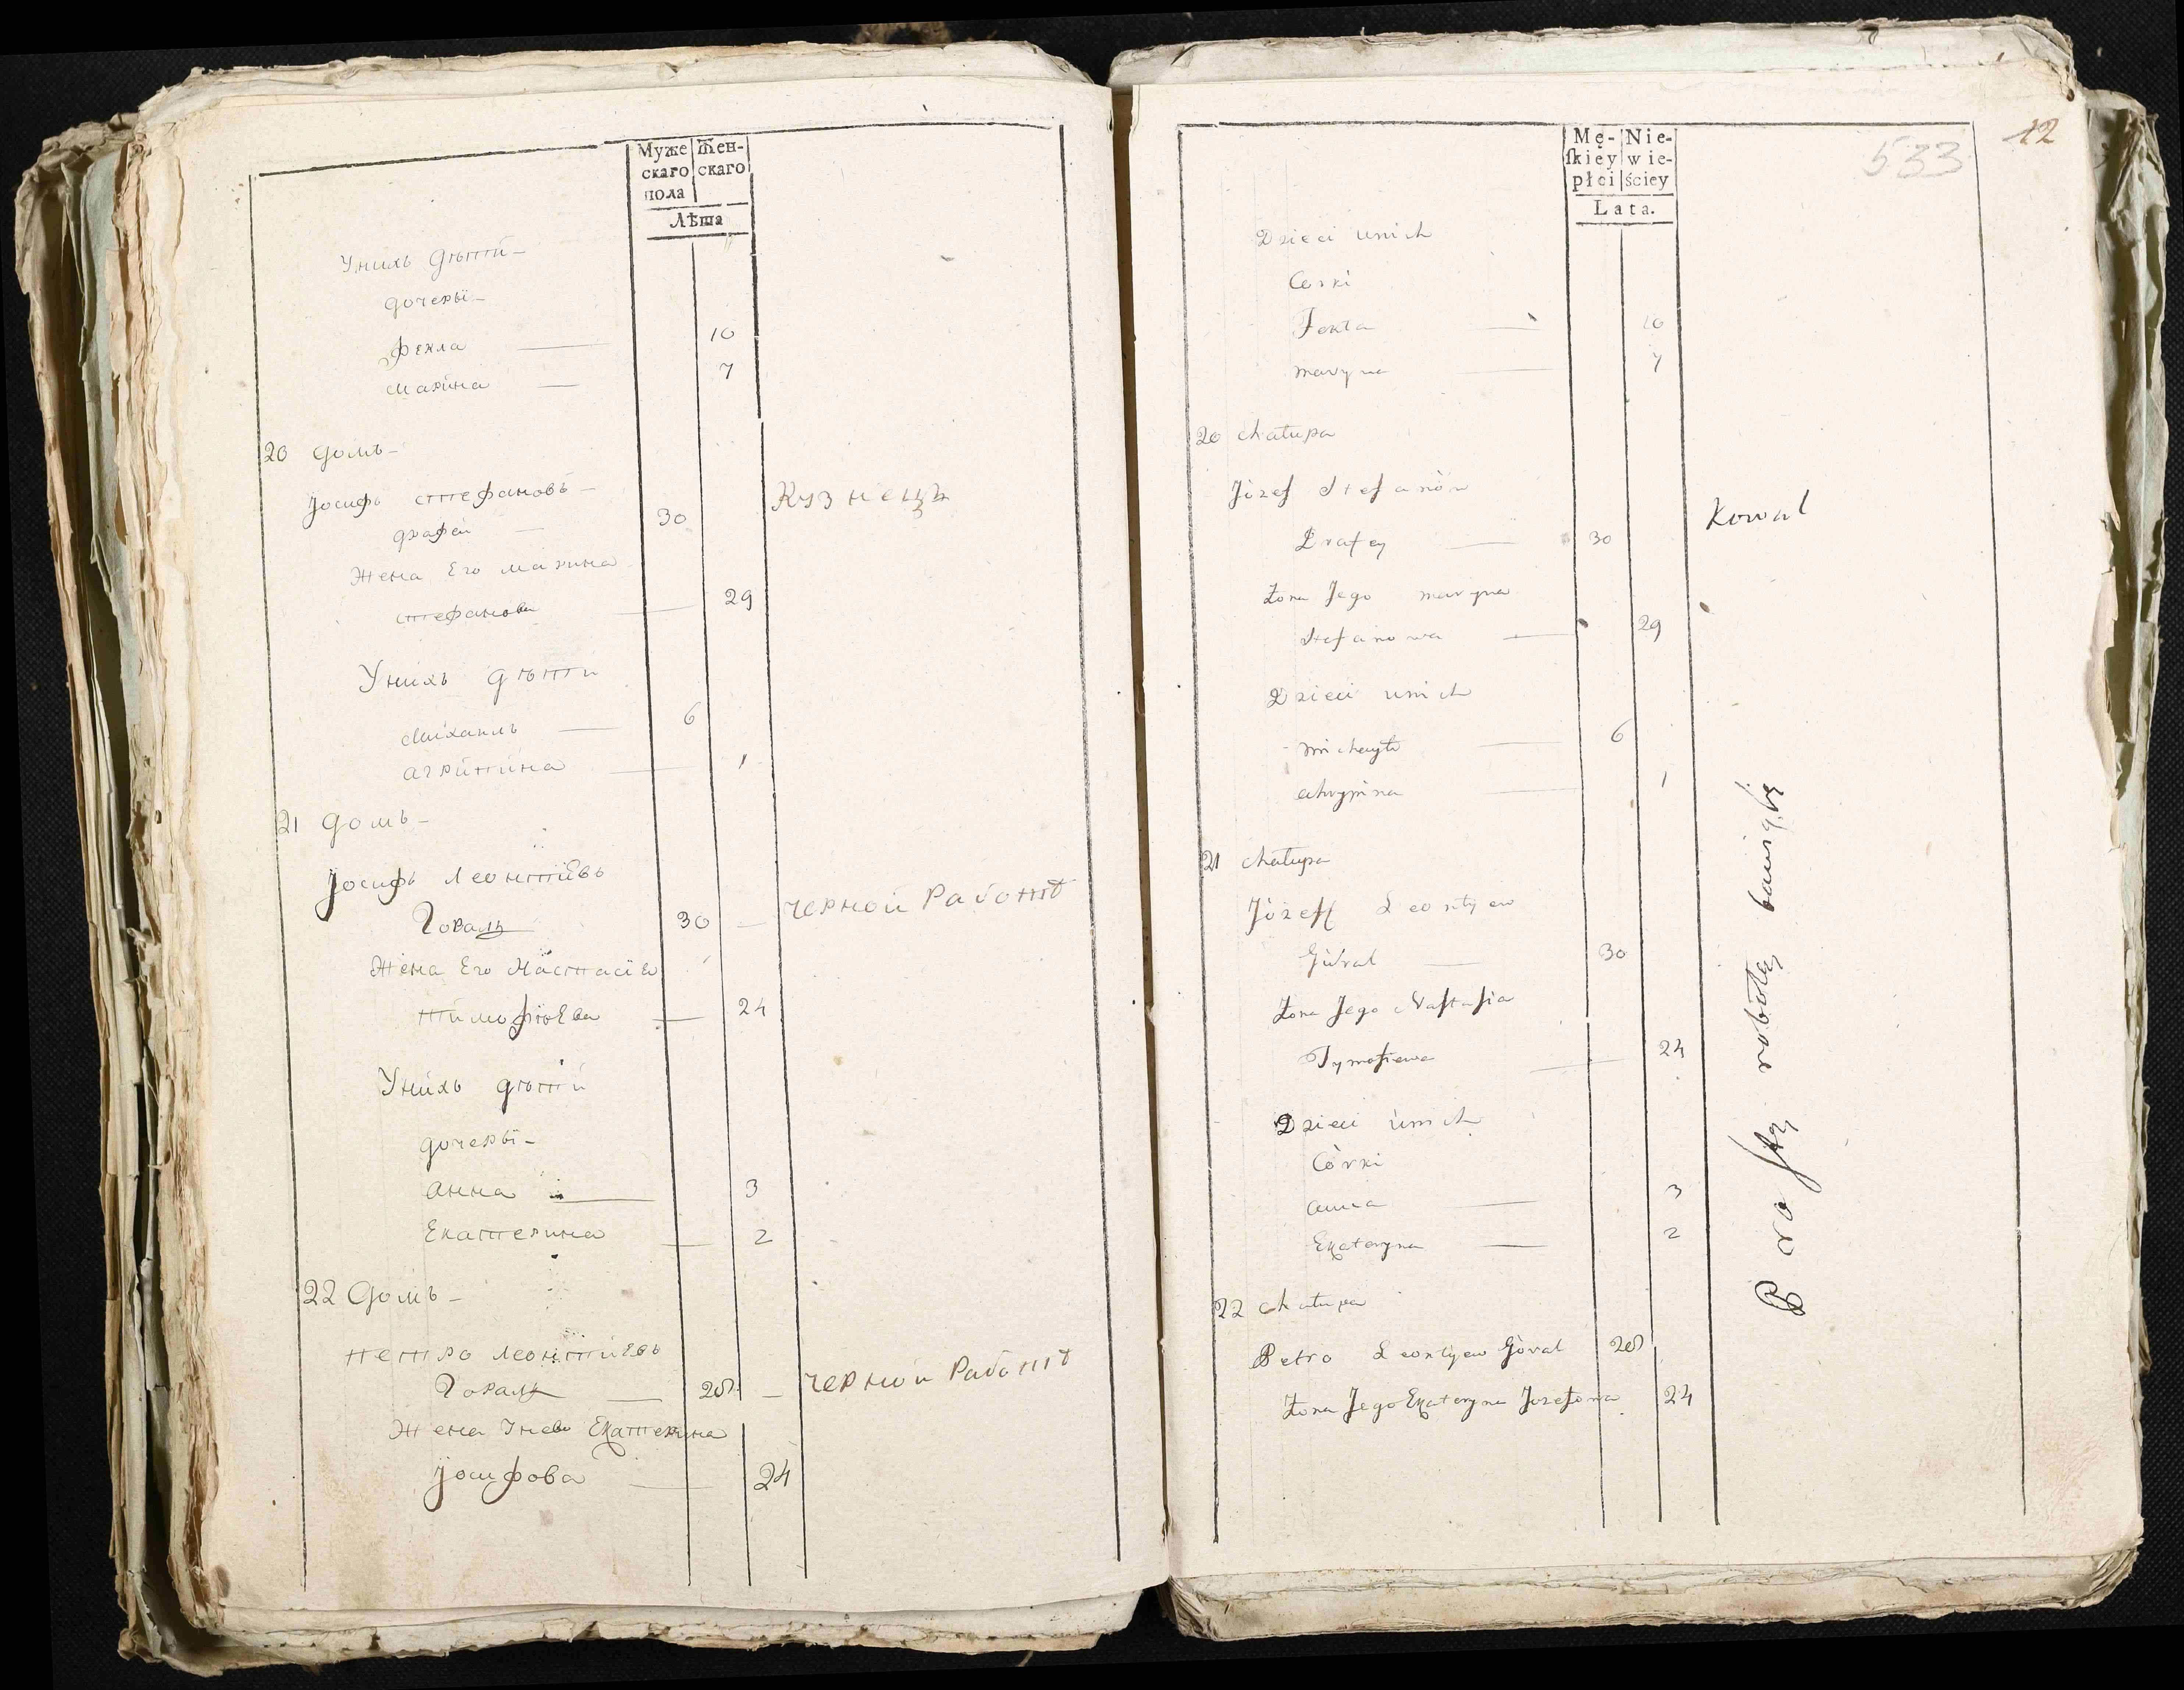 Муже Жен-
скаго скаго
пола
Лѣта
Унихъ дѣтй-
дочеры-
Фекла 10
Марина 7
20 домъ-
Јосифъ стефановъ-
драфей 30 Кузнецъ
Жена Его Марина
стефанова 29
Унихъ дѣти
Михаилъ 6
агрипина 1
21 домъ-
Јосифъ Леонтиевъ
Гораль 30 черной Работѣ
Жена Его Настасия
тимофѣева 24
Унихъ дѣти
дочеры-
анна 3
Екатерина 2
22 домъ-
петро Леонтиевъ
Гораль 28 черной Работѣ
Жена Унево Екатерина
Јосифова 24
12
533
Mę- Nie-
ſkiey wie-
płci ściey
Lata.
Dzieci unich
Corki
Fekla 10
maryna 7
20 chałupa
Józef Stefanów
Drafey 30 Kowal
Żona Jego maryna
Stefanowa 29
Dzieci unich
michayło 6
ahrypina 1
21 chałupa
Józef Leontyew
Góral 30
Żona Jego Naſtaſia
Tymofiewa 24
Dzieci unich
Córki
anna 3
Ekateryna 2
22 chałupa
Petro Leontyew Góral 28
Żona Jego Ekateryna Jozefowa 24
Proſtey robotey